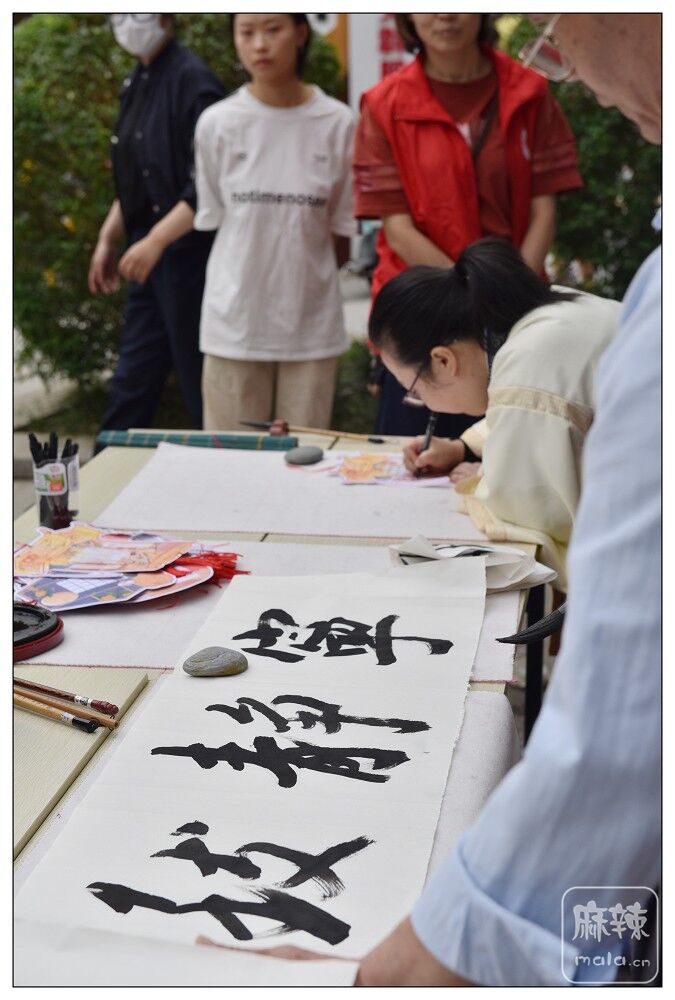 notimenoser
寧靜致
麻辣
mala.cn